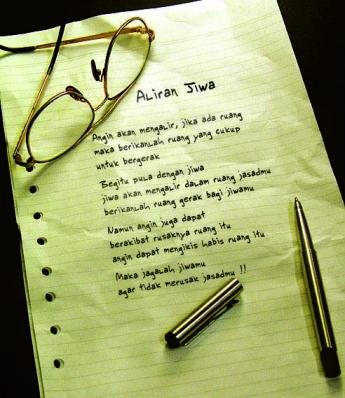 Aliran Jiwa
Angin akan mengalir, jika ada ruang
maka berikanlah ruang yang cukup
untuk bergerak
Begitu pula dengan jiwa
jiwa akan mengalir dalam ruang jasadmu
berikanlah ruang gerak bagi jiwamu
Namun angin juga dapat
berakibat rusaknya ruang itu
angin dapat mengikis habis ruang itu
Maka jagalah jiwamu
agar tidak merusak jasadmu !!